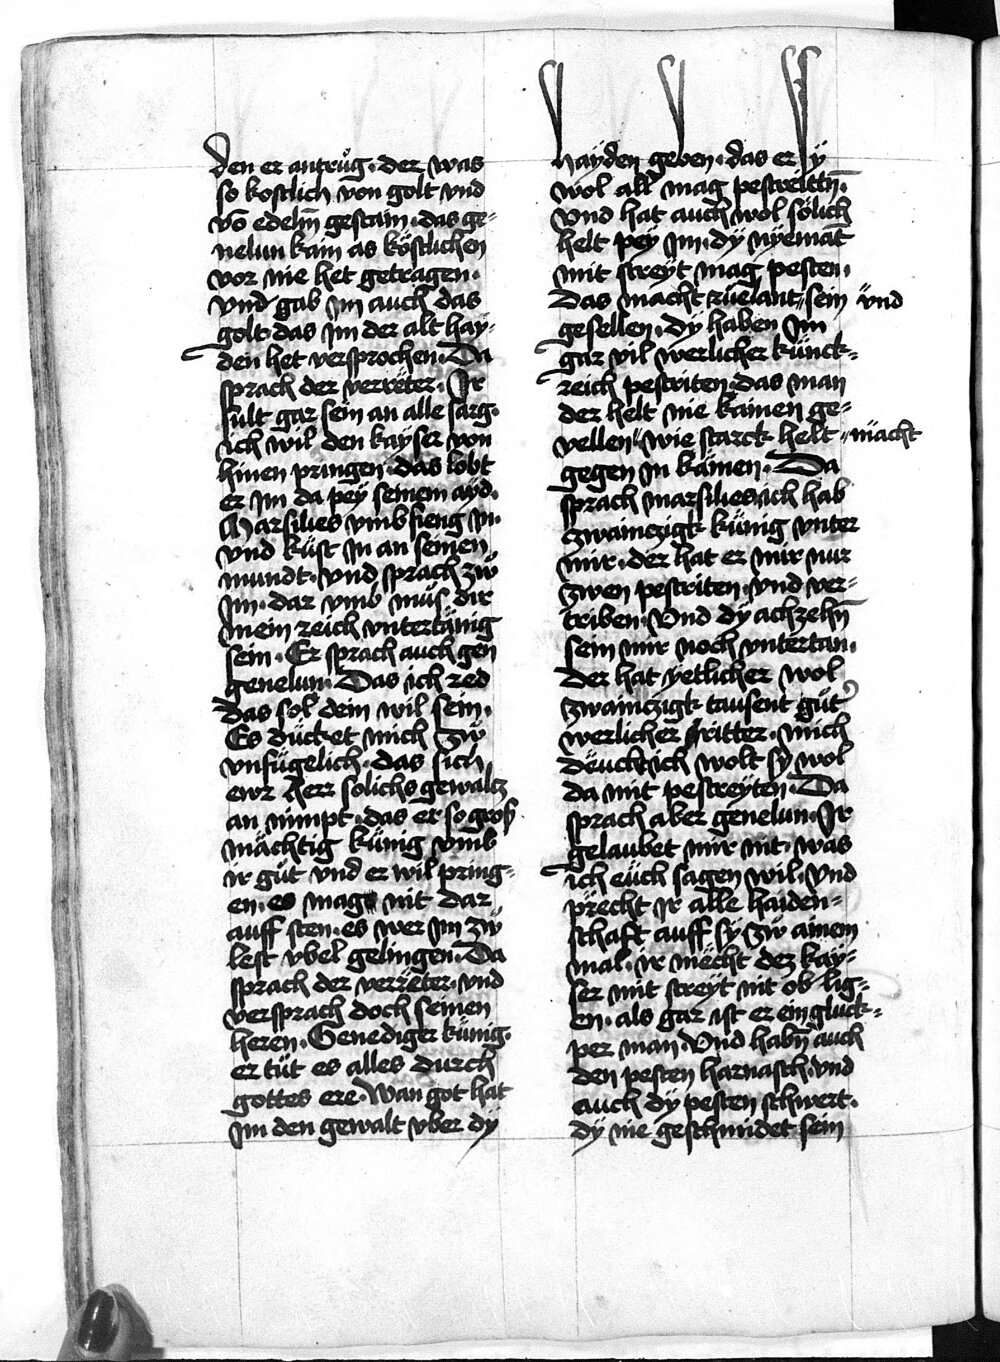 den er antrůg · der was
so kostlich von golt vnd
vō edelm̄ gestain · das ge⸗
nelun kain as köstlichen
vor nie het getragen ·
vnd gab im auch das
golt · das im der alt hay⸗
den het versprochen · Da
sprach der verräter · Ir
sult gar sein an alle sarg ·
ich wil den kayser von
hinen pringen · das lobt
er im da pey seinem ayd ·
Marsilies vmbfieng in ·
vnd küst in an seinen
mundt · vnd sprach zů
im · dar vmb můs dir
mein reich vntertänig
sein · Er sprach auch gen
genelun · Das ich red
das sol dein wil sein ·
Es düncket mich zů
vnfůgelich · das sich
ewr herr solichs gewaltz
an nimpt · das er so groß
mächtig künig vmb
ir gůt vnd er wil pring⸗
en · es mag nit dar
auff sten · es wer im zů
lest vbel gelingen · Da
sprach der verräter · vnd
versprach doch seinen
heren · Genediger künig ·
er tůt es alles durch
gottes ere · Wan got hat
im den gewalt vber dy
hayden geben · das er sy
wol all mag pestreittn̄ ·
Vnd hat auch wol sölich
helt pey im · dy nyemāt
mit streyt mag pesten ·
Das macht růelant · sein vnd
gesellen · dy haben im
gar vil werlicher künck⸗
reich pestriten · das man
der helt nie kainen ge⸗
vellen · wie starck helt · macht
gegen in kämen · Da
sprach marsilies · ich hab
zwainczigk künig vnter
mir · der hat er mir nur
zwen pestriten · vnd ver⸗
triben · Vnd dy achzehn̄
sein mir noch vntertan ·
der hat yetlicher wol
zwainczigk tausent gůt'
werlicher ritter · mich
deuckt ich wolt sy wol
da mit pestreyten · Da
sprach aber genelun · Ir
gelaubet mir nit · was
ich eüch sagen wil · Vnd
prächt ir alle haiden⸗
schaft auff sy zů ainem
mal · ir mächt dez kay⸗
ser mit streyt nit ob lig⸗
en · als gar ist er ein gluck⸗
per man · Vnd habn̄ auch
den pesten harnasch · vnd
auch dy pesten schwert ·
dy nie geschmidet sein